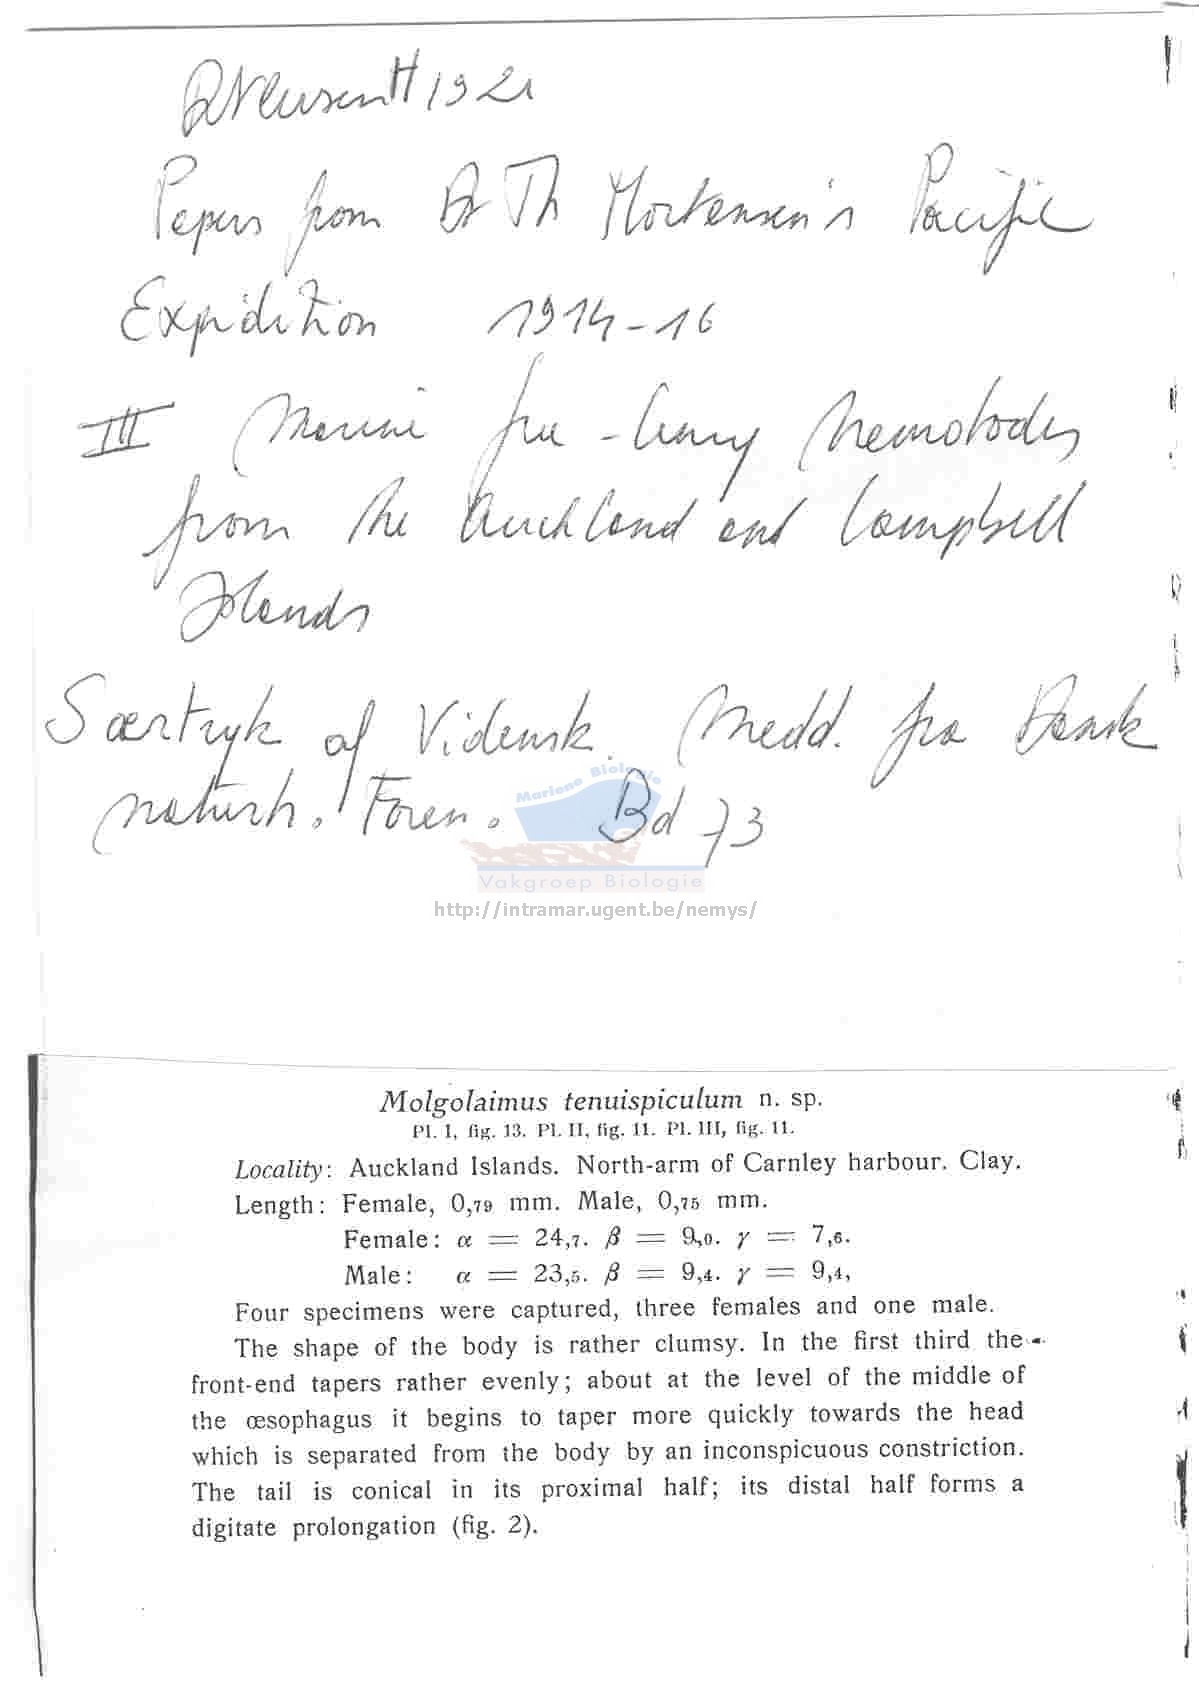 Ditlevsen H 1921
Papers from Dr Th Mortensen's Pacific
Expedition 1914-16
III Marine free-living Nematodes
from the Auckland and Campbell
Islands
Særtryk af Vidensk. Medd. fra Dansk
naturh. Foren. Bd 73
Mariene Biologie
Vakgroep Biologie
http://intramar.ugent.be/nemys/
Molgolaimus tenuispiculum n. sp.
Pl. I, fig. 13. Pl. II, fig. 11. Pl. III, fig. 11.
Locality: Auckland Islands. North-arm of Carnley harbour. Clay.
Length: Female, 0,79 mm. Male, 0,75 mm.
Female: α = 24,7. β = 9,0. γ = 7,6.
Male: α = 23,5. β = 9,4. γ = 9,4,
Four specimens were captured, three females and one male.
The shape of the body is rather clumsy. In the first third the
front-end tapers rather evenly; about at the level of the middle of
the œsophagus it begins to taper more quickly towards the head
which is separated from the body by an inconspicuous constriction.
The tail is conical in its proximal half; its distal half forms a
digitate prolongation (fig. 2).